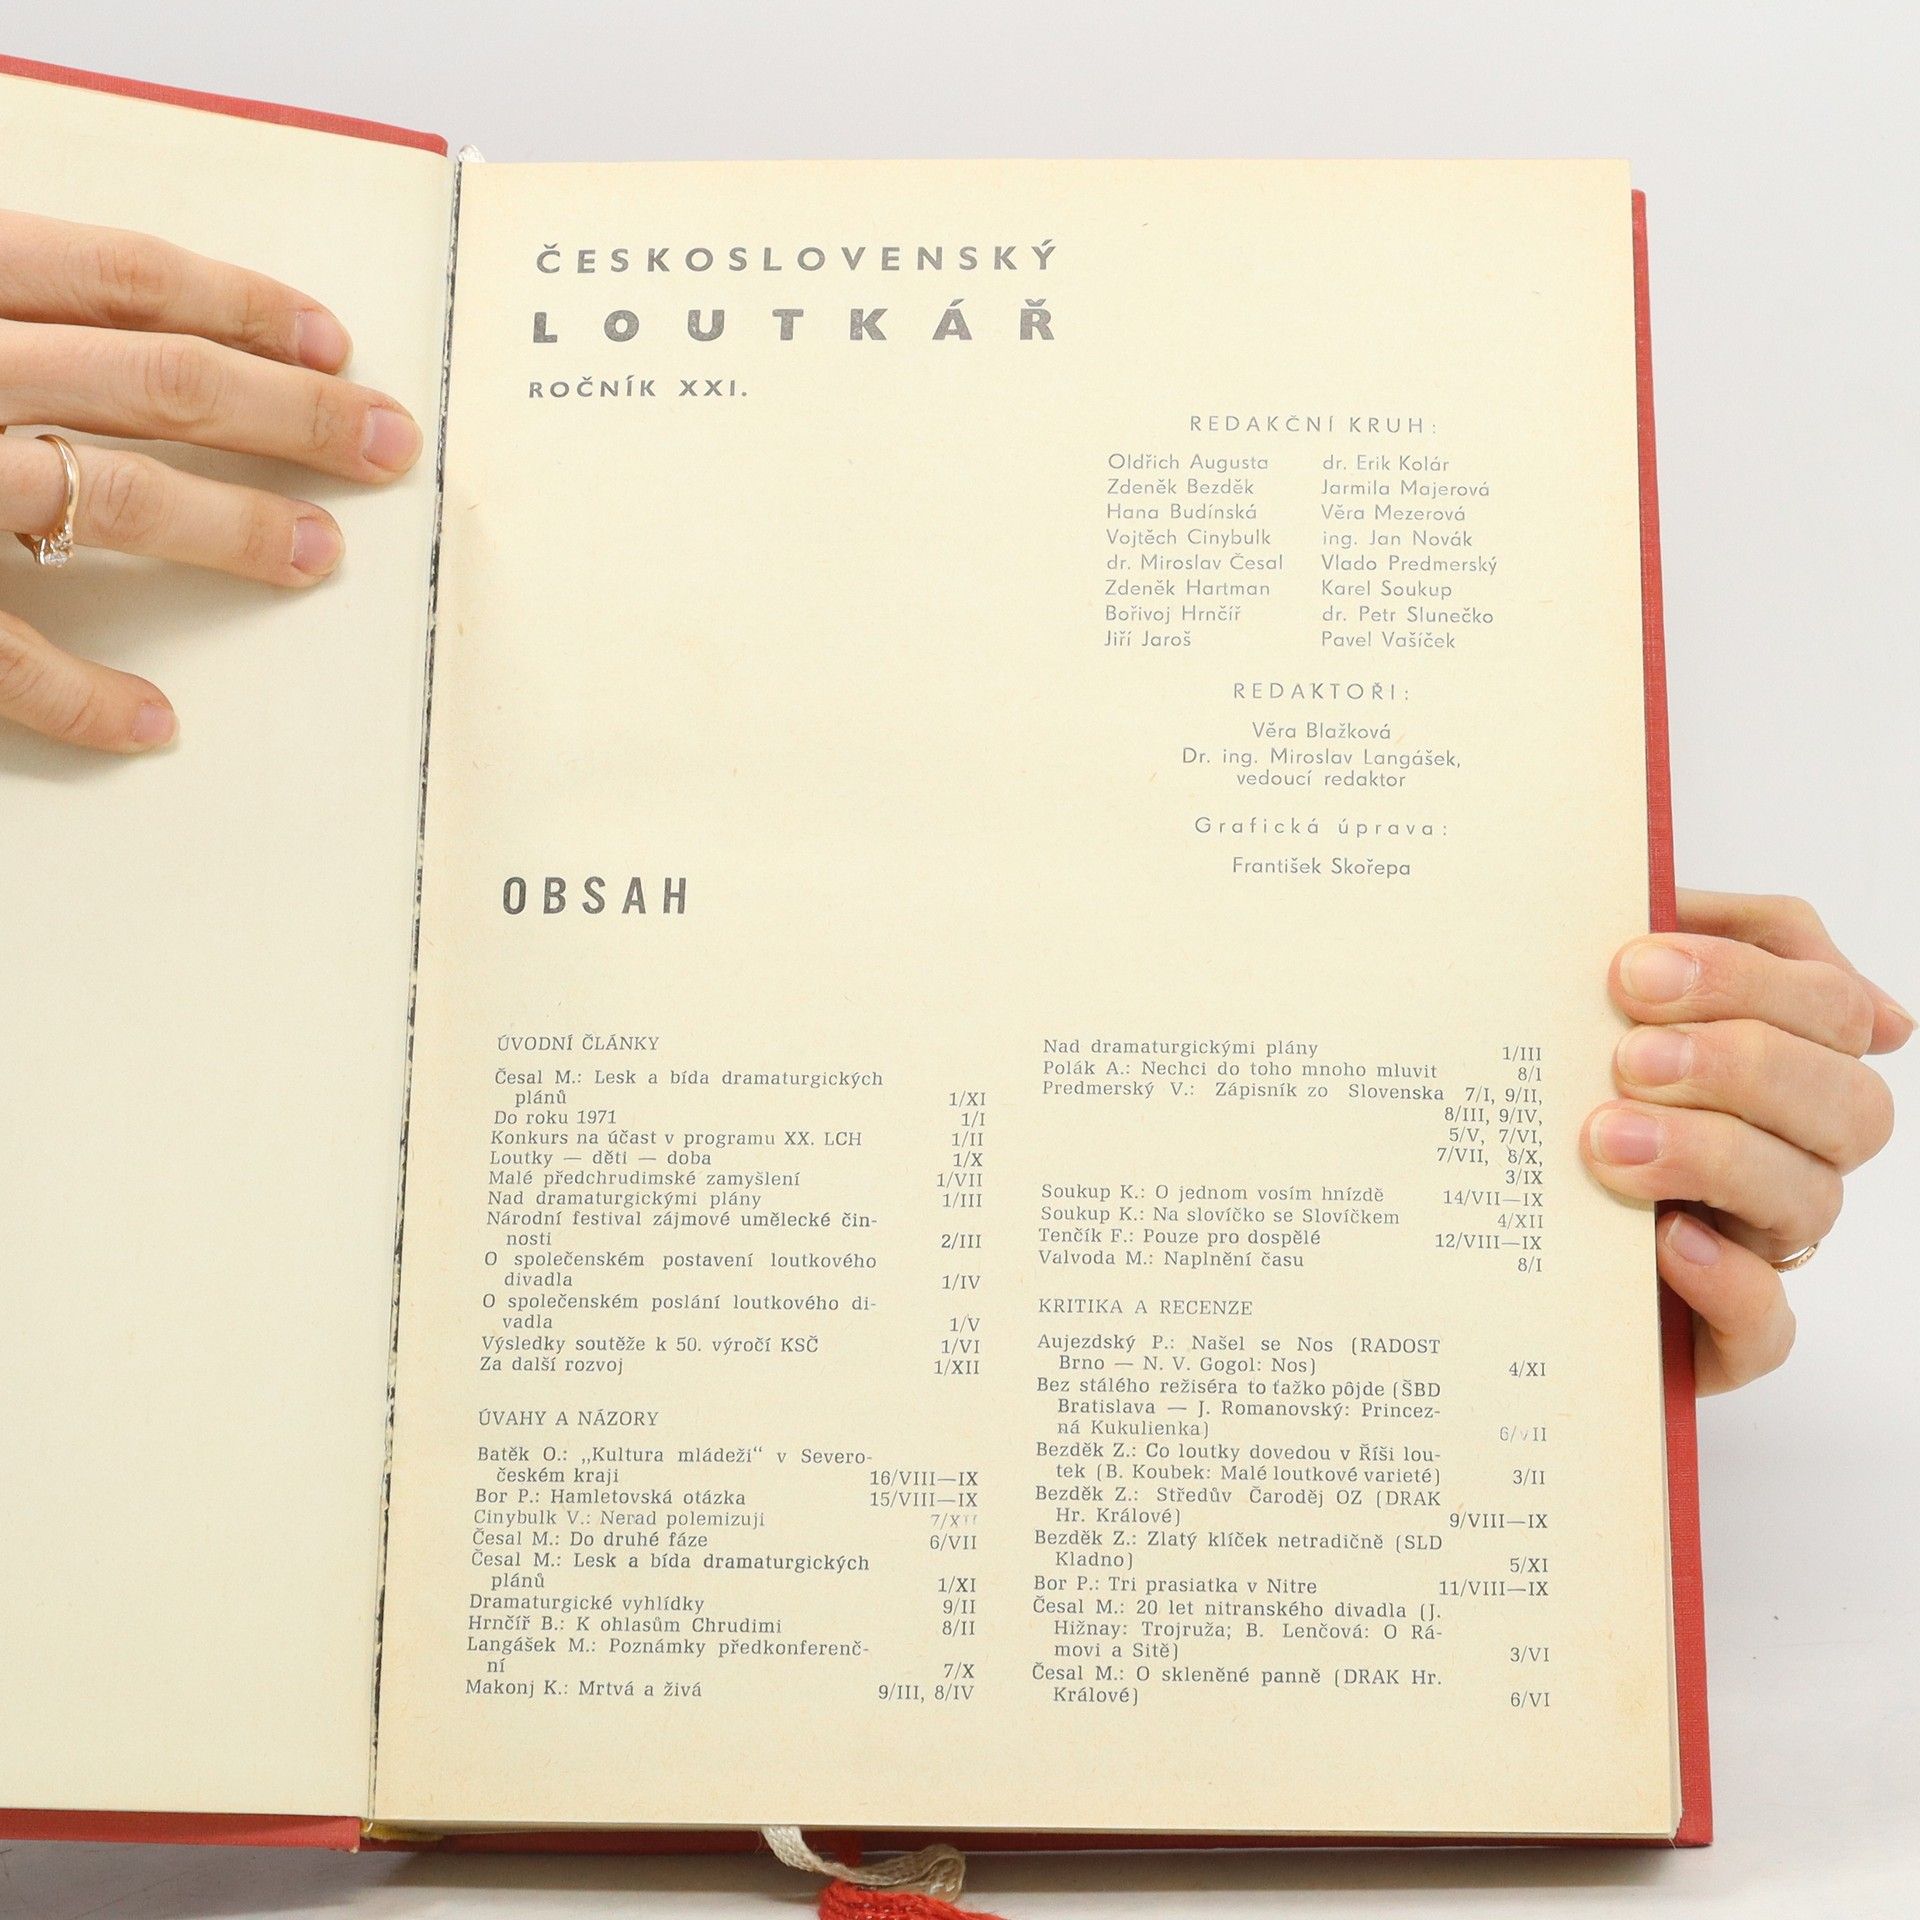 ČESKOSLOVENSKÝ
LOUTKÁŘ
ROČNÍK XXI.
REDAKČNÍ KRUH:
Oldřich Augusta dr. Erik Kolár
Zdeněk Bezděk Jarmila Majerová
Hana Budínská Věra Mezerová
Vojtěch Cinybulk ing. Jan Novák
dr. Miroslav Česal Vlado Predmerský
Zdeněk Hartman Karel Soukup
Bořivoj Hrnčíř dr. Petr Slunečko
Jiří Jaroš Pavel Vašíček
REDAKTOŘI:
Věra Blažková
Dr. ing. Miroslav Langášek,
vedoucí redaktor
Grafická úprava:
František Skořepa
OBSAH
ÚVODNÍ ČLÁNKY
Česal M.: Lesk a bída dramaturgických
plánů 1/XI
Do roku 1971 1/I
Konkurs na účast v programu XX. LCH 1/II
Loutky — děti — doba 1/X
Malé předchrudimské zamyšlení 1/VII
Nad dramaturgickými plány 1/III
Národní festival zájmové umělecké čin-
nosti 2/III
O společenském postavení loutkového
divadla 1/IV
O společenském poslání loutkového di-
vadla 1/V
Výsledky soutěže k 50. výročí KSČ 1/VI
Za další rozvoj 1/XII
ÚVAHY A NÁZORY
Batěk O.: „Kultura mládeži“ v Severo-
českém kraji 16/VIII—IX
Bor P.: Hamletovská otázka 15/VIII—IX
Cinybulk V.: Nerad polemizuji
Česal M.: Do druhé fáze 6/VII
Česal M.: Lesk a bída dramaturgických
plánů 1/XI
Dramaturgické vyhlídky 9/II
Hrnčíř B.: K ohlasům Chrudimi 8/II
Langášek M.: Poznámky předkonferenč-
ní 7/X
Makonj K.: Mrtvá a živá 9/III, 8/IV
Nad dramaturgickými plány 1/III
Polák A.: Nechci do toho mnoho mluvit 8/I
Predmerský V.: Zápisník zo Slovenska 7/I, 9/II,
8/III, 9/IV,
5/V, 7/VI,
7/VII, 8/X,
3/IX
Soukup K.: O jednom vosím hnízdě 14/VII—IX
Soukup K.: Na slovíčko se Slovíčkem 4/XII
Tenčík F.: Pouze pro dospělé 12/VIII—IX
Valvoda M.: Naplnění času 8/I
KRITIKA A RECENZE
Aujezdský P.: Našel se Nos (RADOST
Brno — N. V. Gogol: Nos) 4/XI
Bez stálého režiséra to ťažko pôjde (ŠBD
Bratislava — J. Romanovský: Princez-
ná Kukulienka)
Bezděk Z.: Co loutky dovedou v Říši lou-
tek (B. Koubek: Malé loutkové varieté) 3/II
Bezděk Z.: Středův Čaroděj OZ (DRAK
Hr. Králové) 9/VIII—IX
Bezděk Z.: Zlatý klíček netradičně (SLD
Kladno) 5/XI
Bor P.: Tri prasiatka v Nitre 11/VIII—IX
Česal M.: 20 let nitranského divadla (J.
Hižnay: Trojruža; B. Lenčová: O Rá-
movi a Sitě) 3/VI
Česal M.: O skleněné panně (DRAK Hr.
Králové) 6/VI